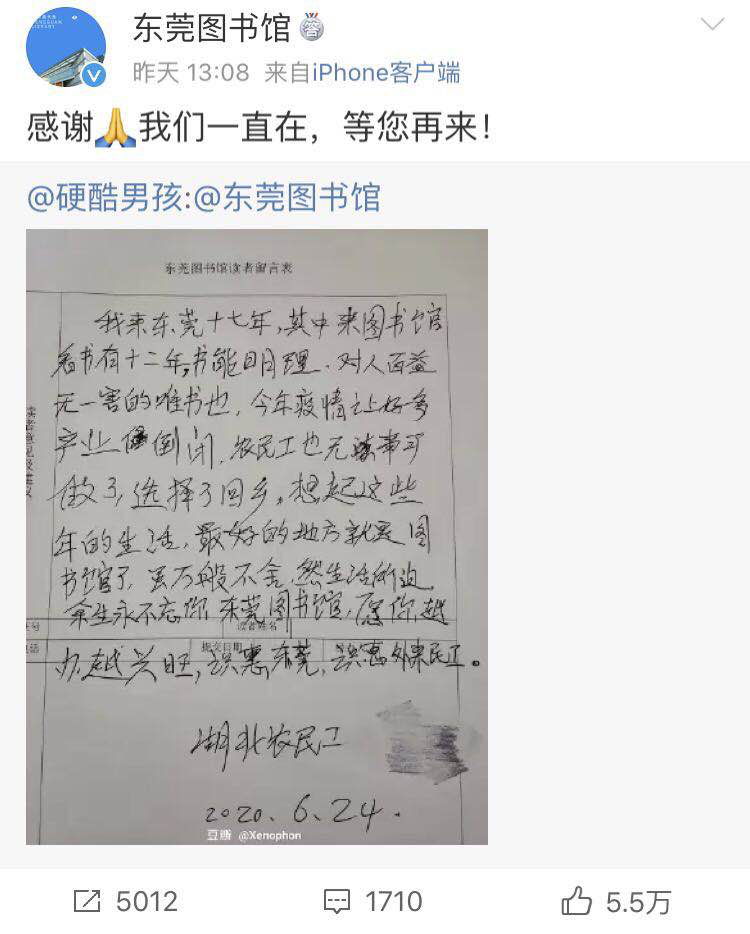 东莞图书馆
昨天 13:08 来自iPhone客户端
感谢🙏我们一直在，等您再来！
@硬酷男孩:@东莞图书馆
东莞图书馆读者留言表
我来东莞十七年，其中来图书馆
看书有十二年，书能明理、对人百益
无一害的唯书也，今年疫情让好多
产业倒闭，农民工也无事可
做了，选择了回乡。想起这些
年的生活，最好的地方就是图
书馆了，虽万般不舍，然生活所迫，
余生永不忘你，东莞图书馆，愿你越
办越兴旺，识惠东莞，识惠外来民工。
读者意见及建议
读者姓名
提交日期
湖北农民工
2020.6.24.
豆瓣 @Xenophon
5012
1710
5.5万